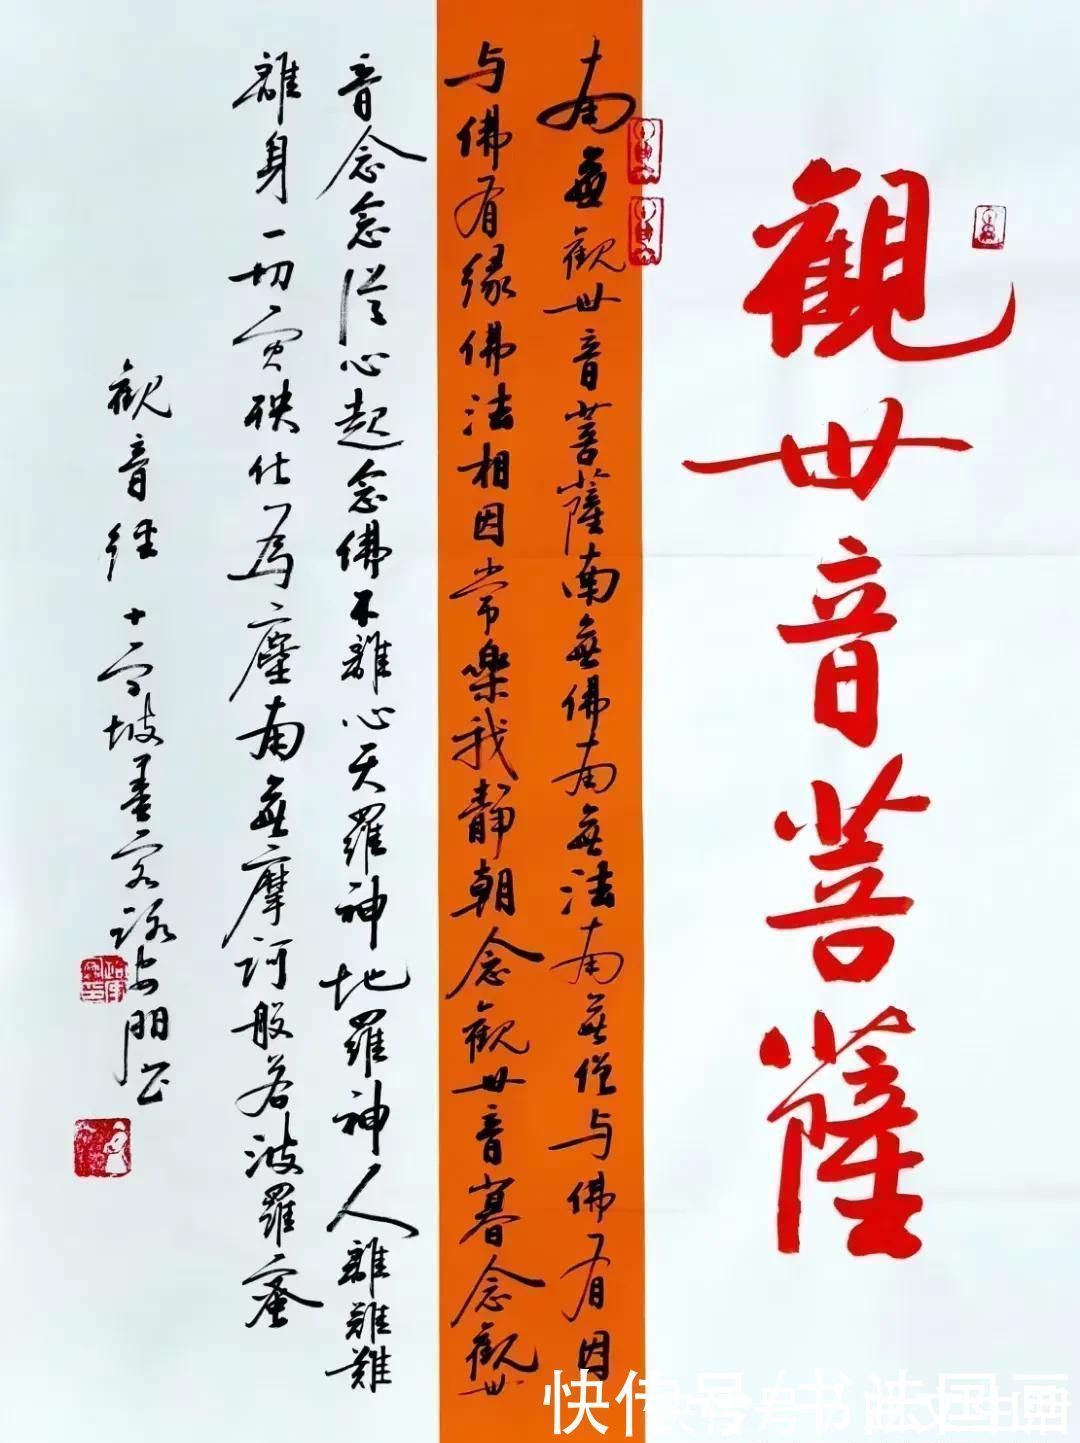 觀世音菩薩
南無觀世音菩薩南無佛南無法南無僧与佛有因
与佛有緣佛法相因常樂我靜朝念觀世音暮念觀世
音念念從心起念佛不離心天羅神地羅神人離難難
離身一切灾殃化為塵南無摩訶般若波羅蜜
觀音經 十雪坡墨客
快传号/书法国画